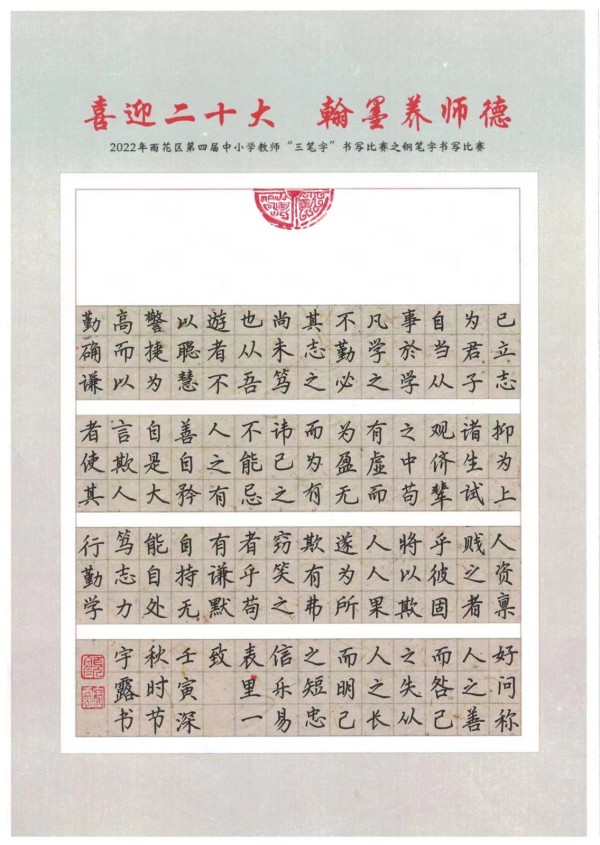 喜迎二十大 翰墨养师德
2022年雨花区第四届中小学教师“三笔字”书写比赛之钢笔字书写比赛
已立志
为君子
自当从
事於学
凡学之
不勤必
其志之
尚未笃
也从吾
遊者不
以聪慧
警捷为
高而以
勤确谦
抑为上
诸生试
观侪辈
之中苟
有虚而
为盈无
而为有
讳己之
不能忌
人之有
善自矜
自是大
言欺人
者使其
人资禀
贱之者
乎彼固
将以欺
人人果
遂为所
欺有弗
窃笑之
者乎苟
有谦默
自持无
能自处
笃志力
行勤学
好问称
人之善
而咎己
之失从
人之长
而明己
之短忠
信乐易
表里一
致
壬寅深
秋时节
宇露书